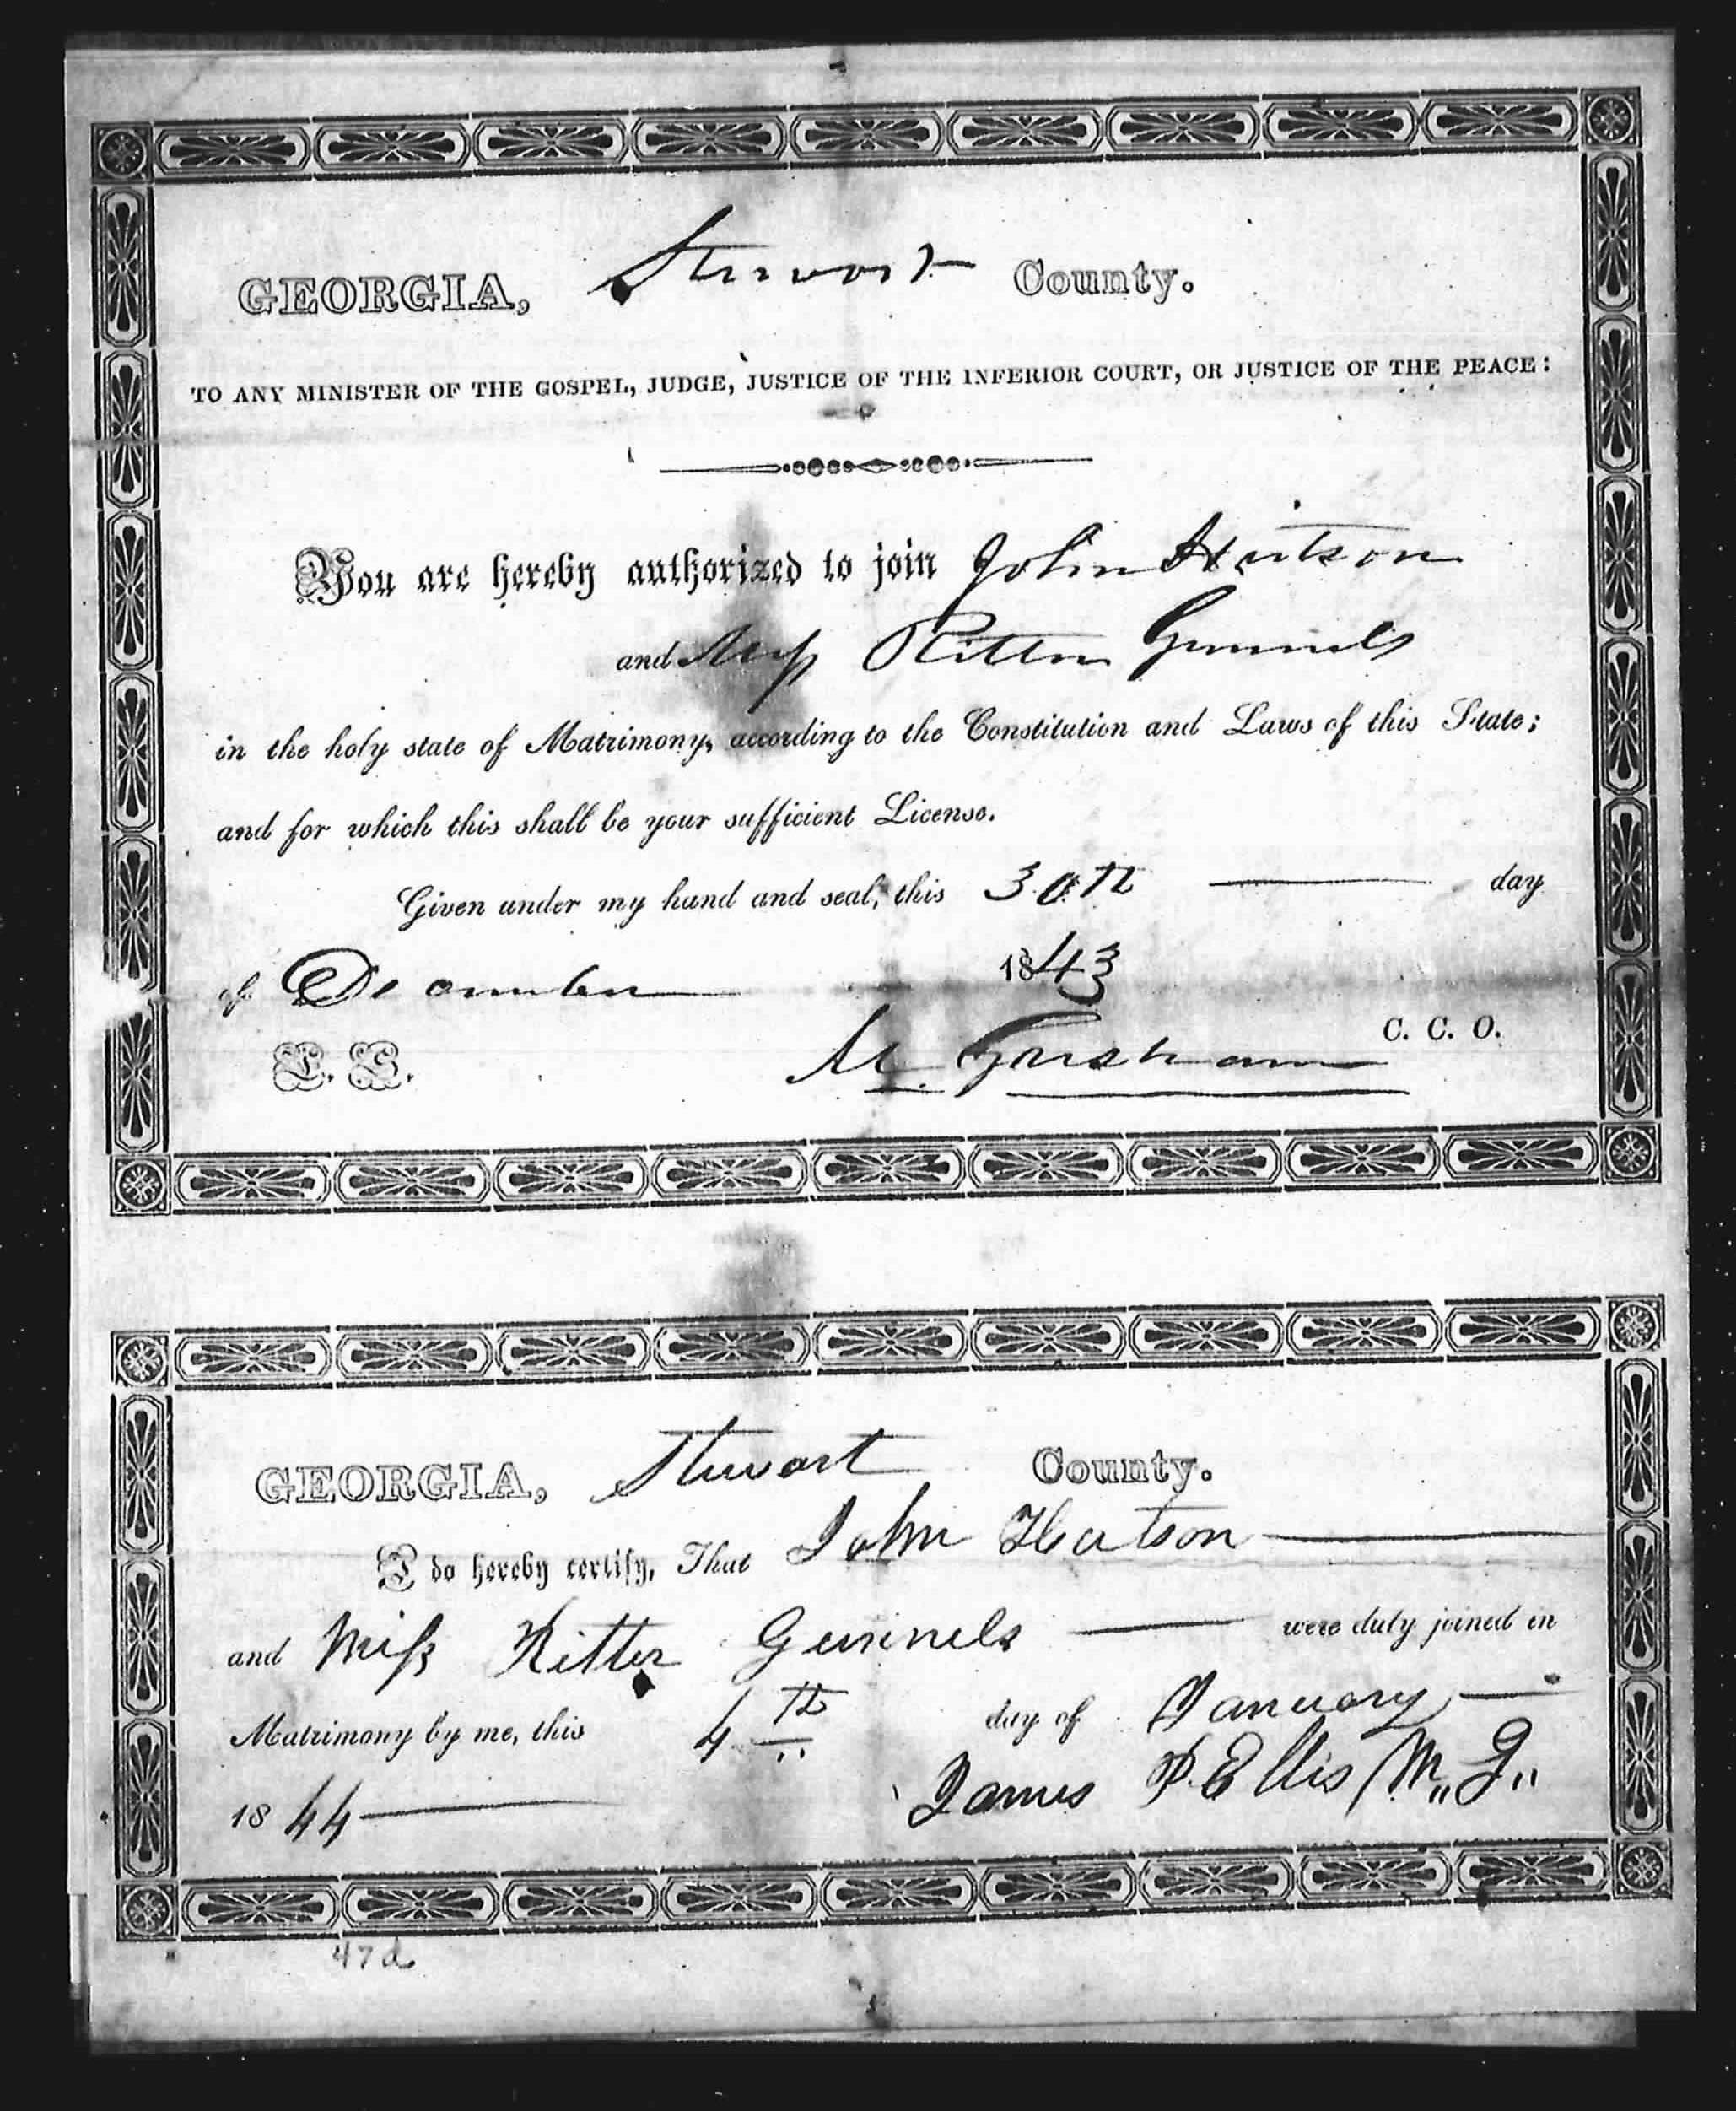 GEORGIA, Stewart County.
TO ANY MINISTER OF THE GOSPEL, JUDGE, JUSTICE OF THE INFERIOR COURT, OR JUSTICE OF THE PEACE:
You are hereby authorized to join John Hutson
and Miss Ritter Gunnels
in the holy state of Matrimony, according to the Constitution and Laws of this State;
and for which this shall be your sufficient License.
Given under my hand and seal, this 30th day
of December 1843
L. S. M. Gresham C. C. O.
GEORGIA, Stewart County.
I do hereby certify, That John Hutson
and Miss Ritter Gunnels were duly joined in
Matrimony by me, this 4th day of January
1844 James P. Ellis M. G.
47d